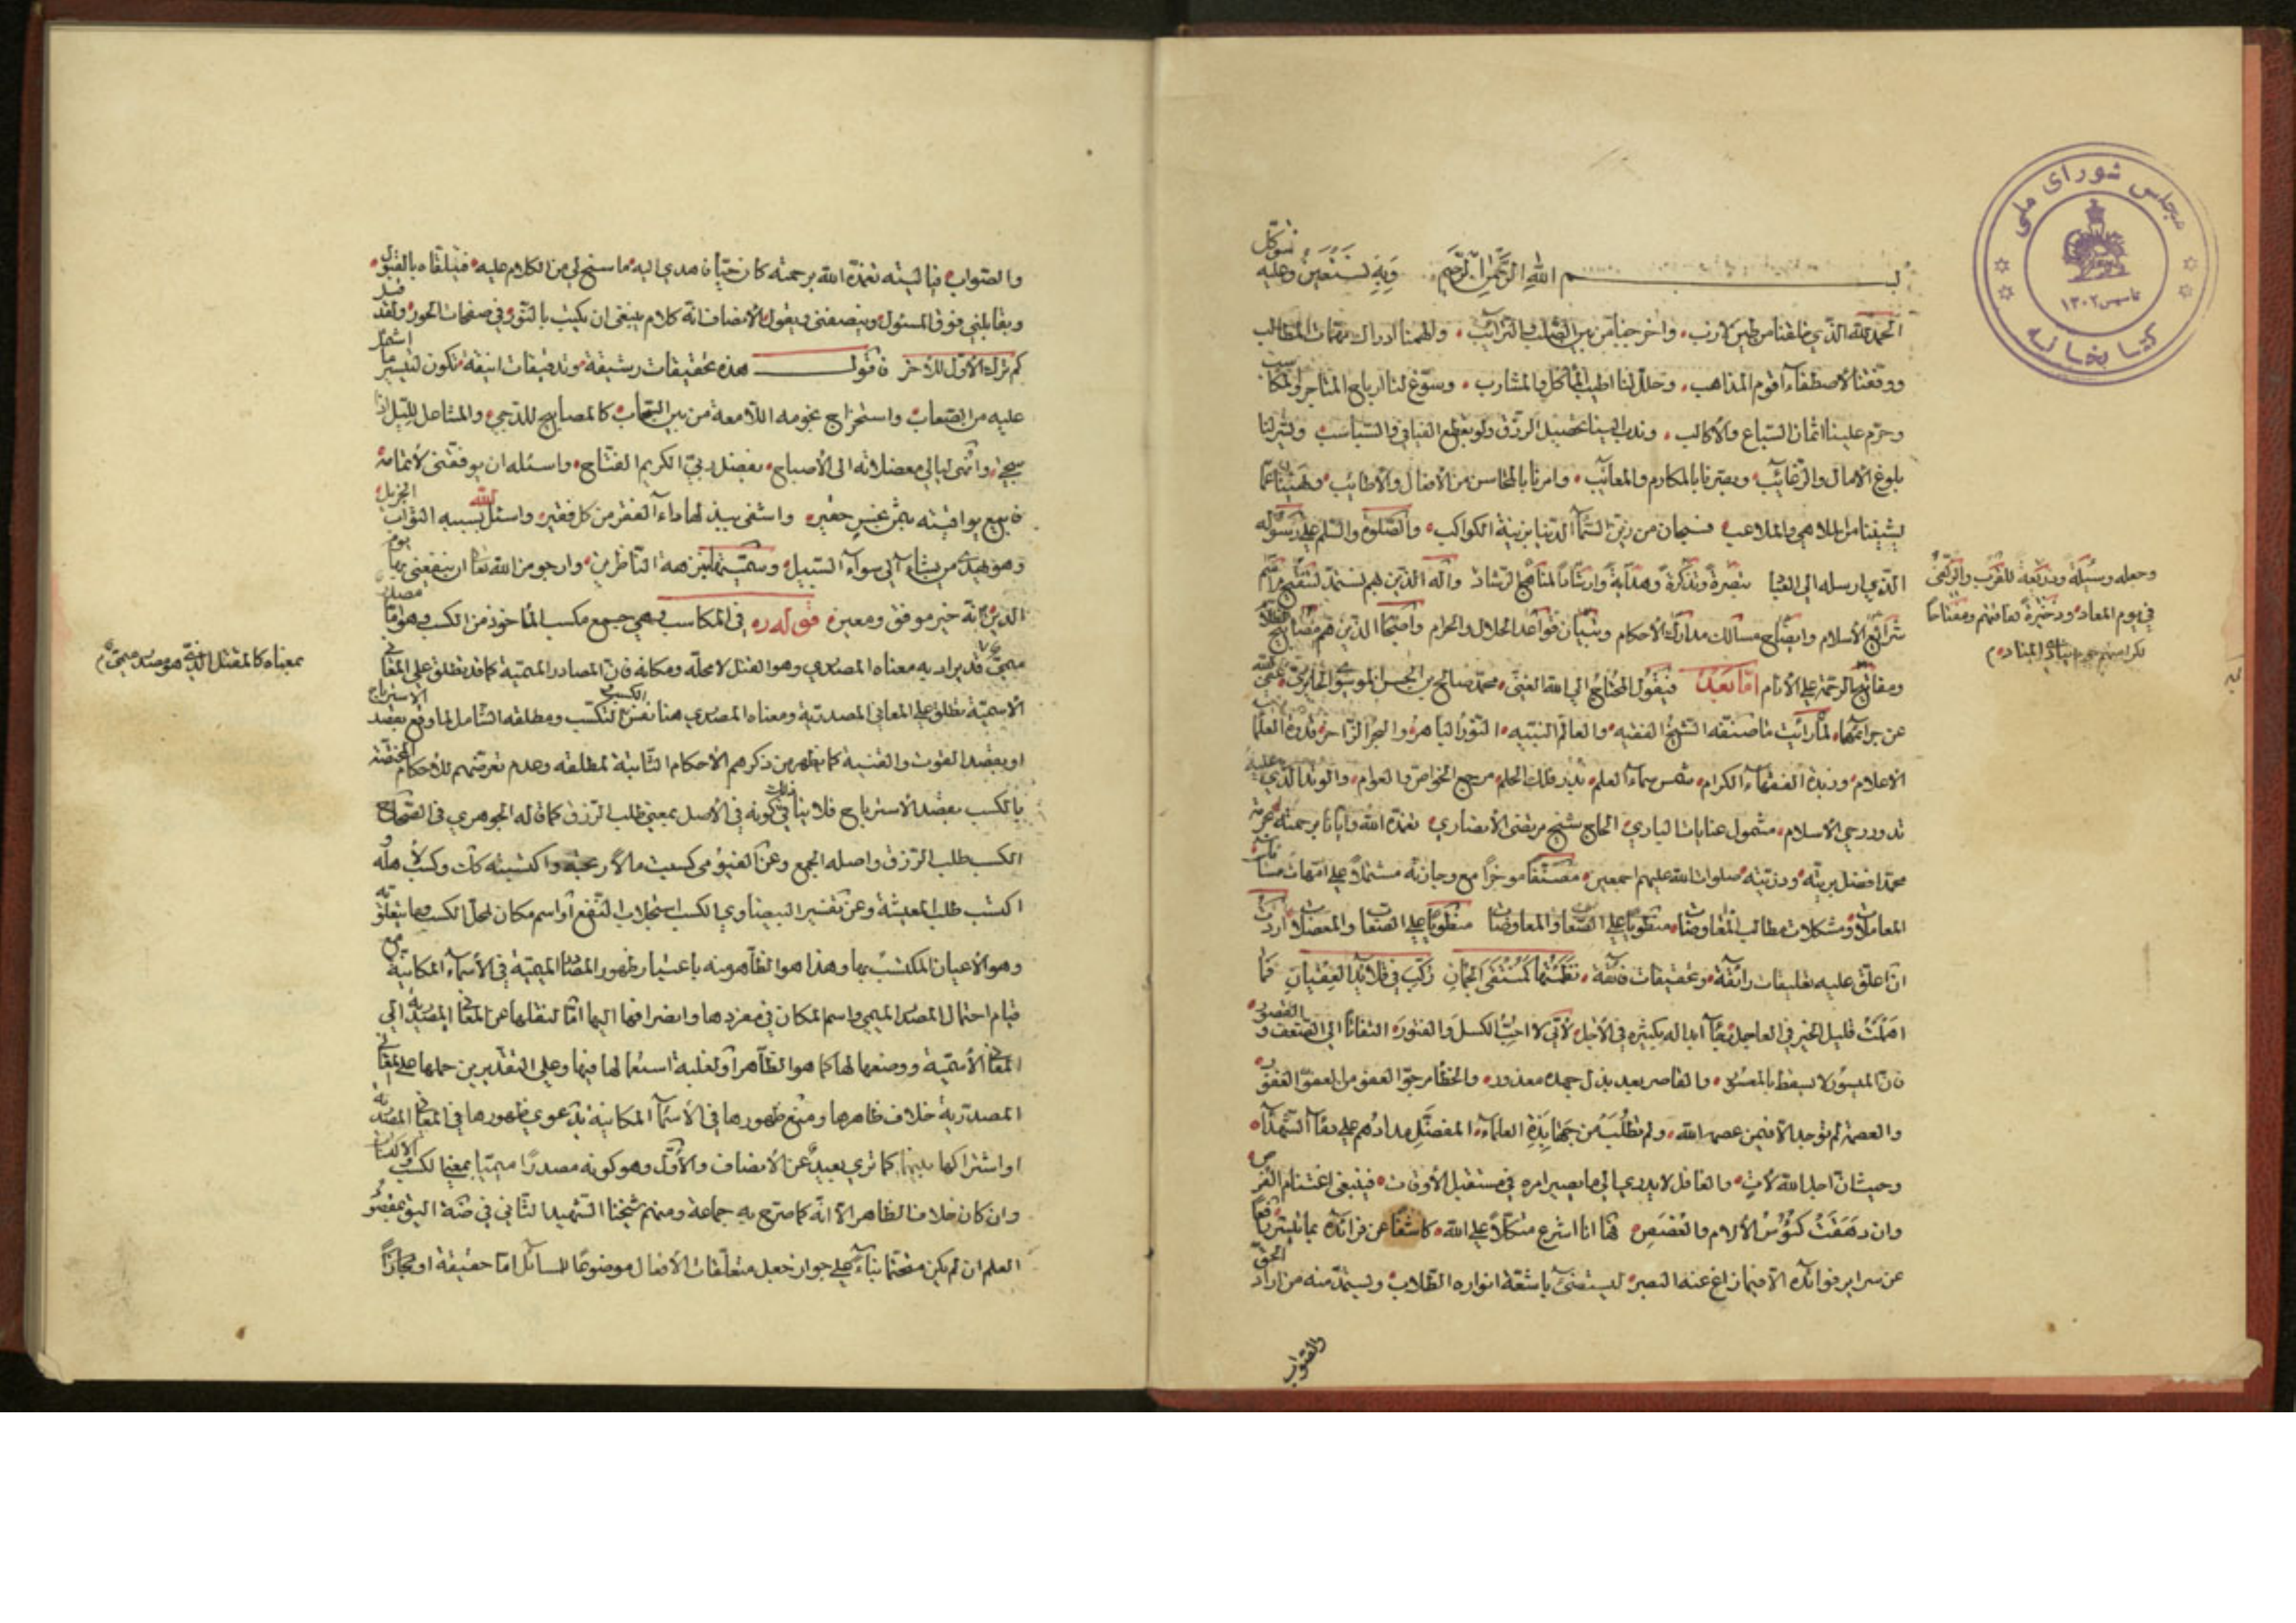 مجلس شورای ملی
کتابخانه
تاسیس ۱۳۰۲
بسم الله الرحمن الرحیم وَبِهِ نَسْتَعِينُ وعليه نتوكل
الحمد لله الذي خلقنا من طين لازب، واخرجنا من بين الصلب والترائب، والهمنا ادراك مهمات المطالب
ووفقنا لأصطفاء اقوم المذاهب، وحلل لنا اطيب المآكل والمشارب، وسوغ لنا ارباح المتاجر والمكاسب
وحرم علينا اثمان السباع والأكالب، وندب الينا تحصيل الرزق ولو بقطع الفيافي والسباسب
بلوغ الامال والرغائب وامرنا بالمحاسن من الأفعال والأطائب
من الملاهي والملاعب فسبحان من زين السماء الدنيا بزينة الكواكب، والصلوة والسلم على رسوله
الذي ارسله الى تبصرةً وتذكرةً وهدايةً وارشاداً لمناهج الرشاد وآله الذين هم
شرائع الأسلام وايضاح مسالك مدارك الأحكام وتبيان قواعد الحلال والحرام واصحابه الذين هم مصابيح
ومفاتيح الرحمة على الأنام اما بعد فيقول المحتاج الى الله الغني، محمد صالح بن الحسن الموسوي الحايري، عفى الله
عن جرائمهما، لما رأيت ما صنفه الشيخ الفقيه، والعالم النبيه، النور الباهر، والبحر الزاخر، قدوة العلماء
الاعلام، وزبدة الفقهاء الكرام، شمس سماء العلم، بدر فلك الحلم، مرجع الخواص والعوام، والوتد الذي عليه
تدور رحى الأسلام، مشمول عنايات الباري، الحاج شيخ مرتضى الأنصاري، تغمده الله وايانا برحمته بحرمة
محمد افضل بريته، وذريته، صلوات الله عليهم اجمعين، مصنفاً موجزاً مع وجازته مشتملاً على امهات مسائل
المعاملات ومشكلات مطالب المعاوضات
ان اعلق عليه تعليقات رائقة، وتحقيقات فائقة،
قليل الخير في العاجل لأني لا احب الكسل والفتور، التفاتاً الى الضعف و القصور
فان الميسور لا يسقط بالمعسور، والقاصر بعد بذل جهده معذور، والخطأ مرجو العفو من العفو الغفور
والعصمة لم توجد الا فيمن عصمه الله، ولم تطلب من جهابذة العلماء، المفضل مدادهم على دماء الشهداء
وحيث ان اجل الله لآت، والغافل لا يدري الى ما يصير امره في مستقبل الأوقات، فينبغي اغتنام الفرص
وان دهقت كؤس الألام والغصص فها انا اشرع متكلاً على الله، كاشفاً عن فرائده
عن سراير فوائده الا فيما زاغ عنه البصر، ليستضئ باشعة انواره الطلاب، ويستمد منه من اراد الحق
والصواب
وجعله وسيلة وذريعة للقرب والزلفى
في يوم المعاد، وذخيرة لعاقبتهم ومفتاحاً
والصواب، فيا ليته تغمده الله برحمته كان حياً فاهدي اليه ما سنح لي من الكلام عليه، فيتلقاه بالقبول
ويقابلني فوق المسئول، وينصفني ويقول الأنصاف انه كلام ينبغي ان يكتب بالنور في صفحات الحور، ولقد قيل
كم ترك الأول للآخر فاقول هذه تحقيقات رشيقة، وتدقيقات انيقة، تكون لتيسير ما اشكل
عليه من الصعاب، واستخراج نجومه اللامعة من بين السحاب، كالمصابيح للدجى، والمشاعل لليل اذا
سجى، وانهى ليالي معضلاته الى الأصباح، بفضل ربي الكريم الفتاح، واسئله ان يوفقني لأتمامه
فابيع يواقيته بثمن بخس حقير، واشفي ببذلها داء الفقر من كل فقير، واسئل الله بسببه الثواب الجزيل
وهو يهدي من يشاء الى سواء السبيل، وسميتها بنزهة الناظرين، وارجو من الله تعالى ان ينفعني بها يوم
الدين انه خير موفق ومعين، قوله ره في المكاسب وهي جمع مكسب المأخوذ من الكسب وهو اما مصدر
ميمي قد يراد به معناه المصدري وهو الفتل لا محله ومكانه فان المصادر الميمية كما قد تطلق على المعاني
الأسمية تطلق على المعاني المصدرية ومعناه المصدري هنا نفس التكسب ومطلقه الشامل لما وقع بقصد الأسترباح
او بقصد القوت والقنية كما يظهر من ذكرهم الأحكام الثابتة لمطلقه وعدم تعرضهم للأحكام المختصة
بالكسب بقصد الأسترباح فلا ينافي ذلك كونه في الأصل بمعنى طلب الرزق كما قاله الجوهري في الصحاح
الكسب طلب الرزق واصله الجمع وعن الفيومي كسبت مالاً ربحته واكتسبته كذلك وكسب لأهله و
اكتسب طلب المعيشة وعن تفسير البيضاوي الكسب استجلاب النفع او اسم مكان لمحل الكسب وما يتعلق به
وهو الأعيان المكتسب بها وهذا هو الظاهر منه باعتبار ظهور المصادر الميمية في الأسماء المكانية مع
قيام احتمال المصدر الميمي واسم المكان في مفردها وانصرافها اليها اما لنقلها عن المعاني المصدرية الى
المعاني الأسمية ووضعها لها كما هو الظاهر او لغلبة استعمالها فيها وعلى التقديرين حملها على المعاني
المصدرية خلاف ظاهرها ومنع ظهورها في الأسماء المكانية بدعوى ظهورها في المعاني المصدرية
او اشتراكها بينهما كما ترى بعيد عن الأنصاف والأول وهو كونه مصدراً ميمياً بمعنى الكسب والأكتساب
وان كان خلاف الظاهر الا انه كما صرح به جماعة ومنهم شيخنا الشهيد الثاني في ضة اليق بمقصود
العلم ان لم يكن متحتماً بناءً على جواز جعل متعلقات الأفعال موضوعاً للمسائل اما حقيقة او مجازاً